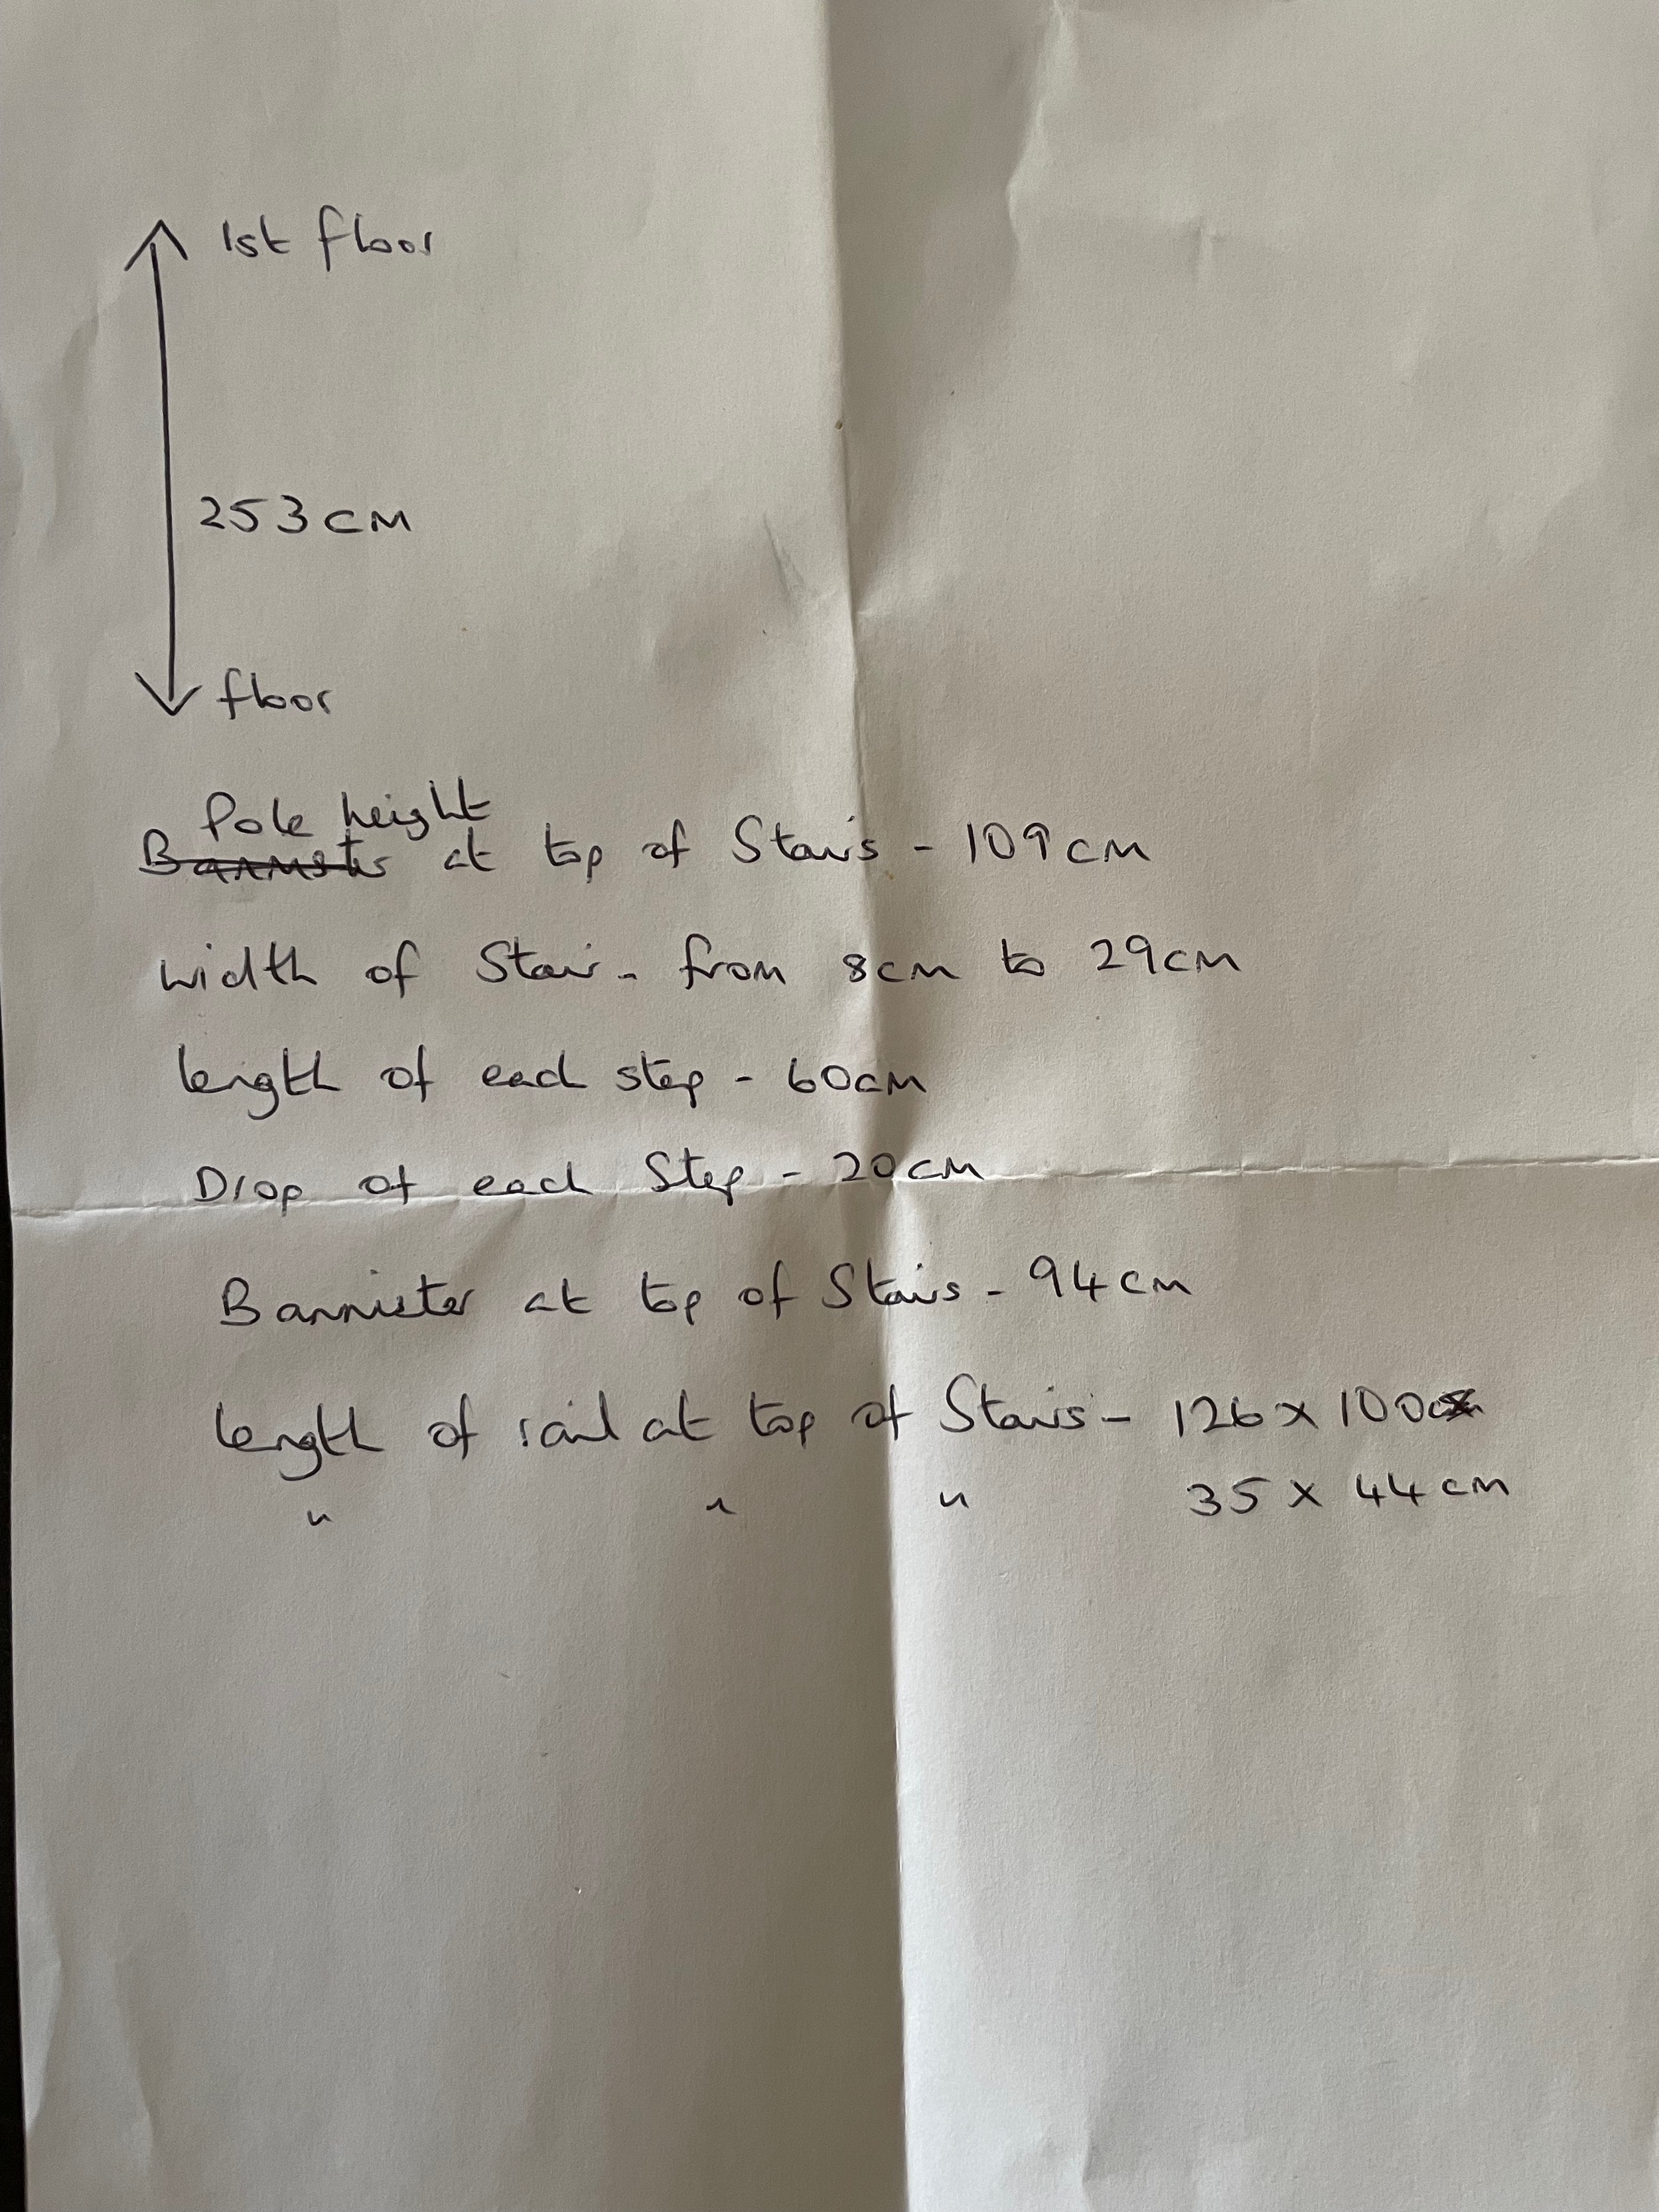 1st floor
253 CM
floor
Pole height
Bannister at top of Stairs - 109 cm
width of Stair - from 8cm to 29cm
length of each step - 60cm
Drop of each Step - 20cm
Bannister at top of Stairs - 94cm
length of rail at top of Stairs - 126 x 100 x
" " " 35 x 44 cm